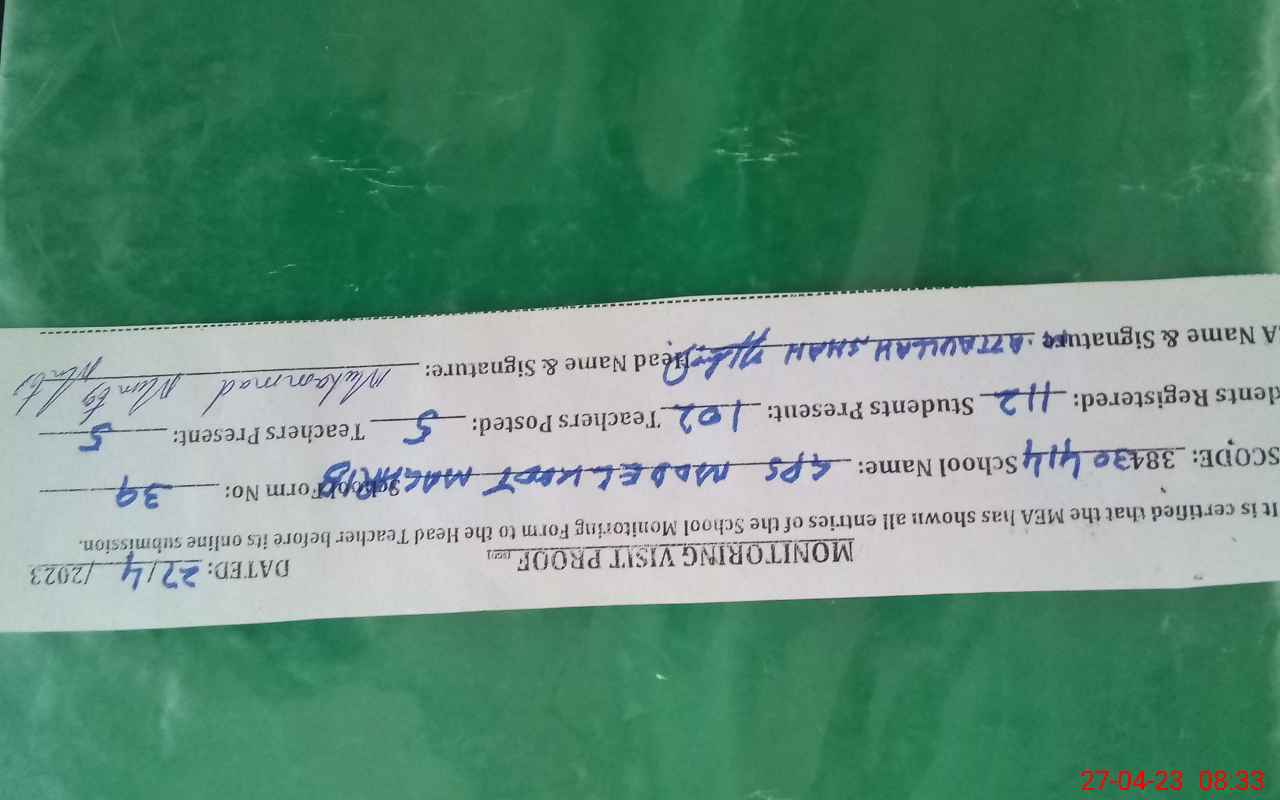 MONITORING VISIT PROOF
DATED: 27/4/2023
It is certified that the MEA has shown all entries of the School Monitoring Form to the Head Teacher before its online submission.
SCODE: 38430414 School Name: GPS MODEL KOOT School Form No: 39
dents Registered: 112 Students Present: 102 Teachers Posted: 5 Teachers Present: 5
A Name & Signature ATTAULLAH SHAH Head Name & Signature: Muhammad
27-04-23 08:33